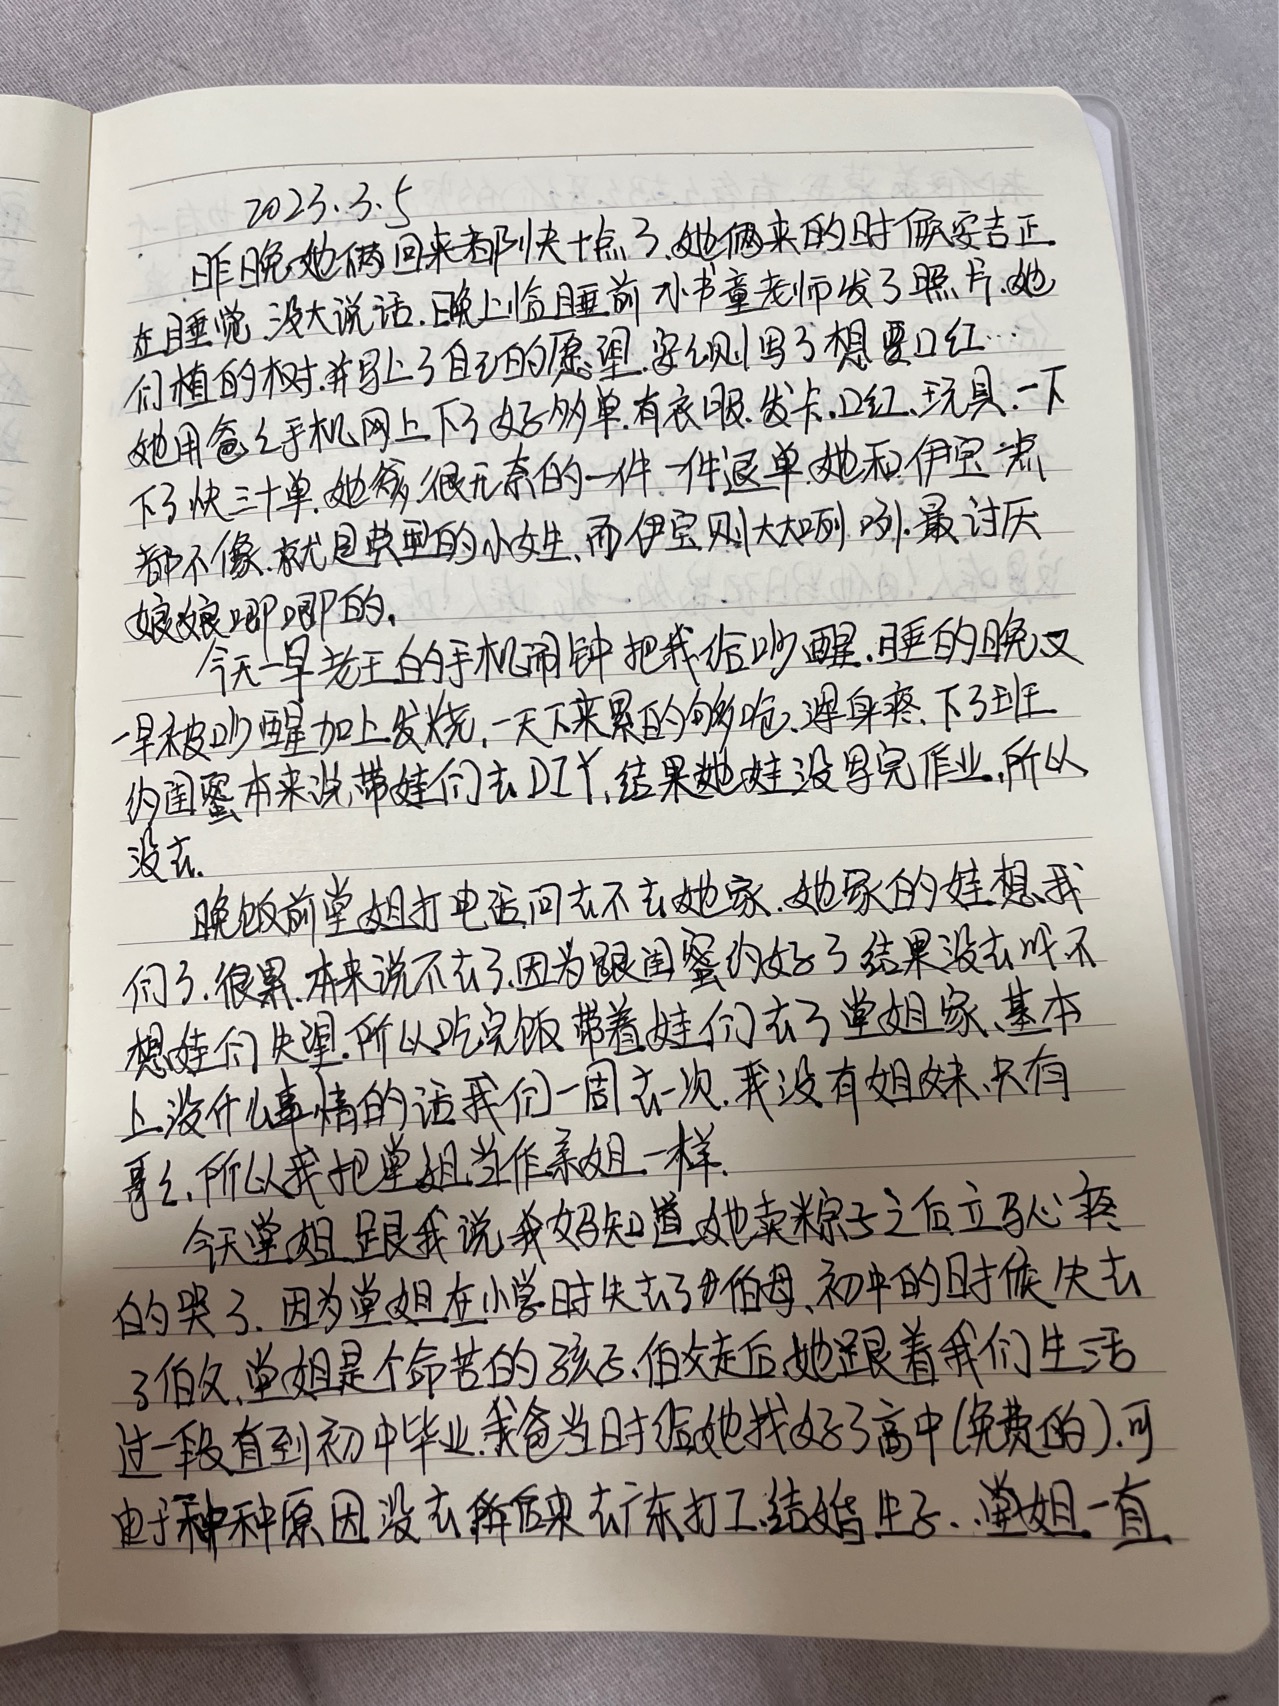 2023.3.5
昨晚她俩回来都快十点了.她俩来的时候安吉正
在睡觉.没大说话.晚上临睡前小书童老师发了照片.她
们植的树.并写上了自己的愿望.安安则写了想要口红…
她用爸爸手机网上下了好多单.有衣服.发卡.口红.玩具.一下
下了快三十单.她爸.很无奈的一件.一件退单.她和伊宝一点
都不像.就是典型的小女生.而伊宝则大大咧咧.最讨厌
娘娘唧唧的.
今天一早老王的手机闹钟把我给吵醒.睡的晚又
一早被吵醒加上发烧.一天下来累的够呛.浑身疼.下了班
约闺蜜本来说带娃们去DIY.结果她娃没写完作业.所以
没去.
晚饭前堂姐打电话问去不去她家.她家的娃想我
们了.很累.本来说不去了.因为跟闺蜜约好了结果没去吗不
想娃们失望.所以吃完饭带着娃们去了堂姐家.基本
上没什么事情的话我们一周去一次.我没有姐妹.只有
哥哥.所以我把堂姐当作亲姐一样.
今天堂姐跟我说我妈知道她卖粽子之后立马心疼
的哭了.因为堂姐在小学时失去了伯母.初中的时候失去
了伯父.堂姐是个命苦的孩子.伯父走后她跟着我们生活
过一段直到初中毕业.我爸当时给她找好了高中(免费的).可
由于种种原因没去后来去广东打工.结婚生子.堂姐一直